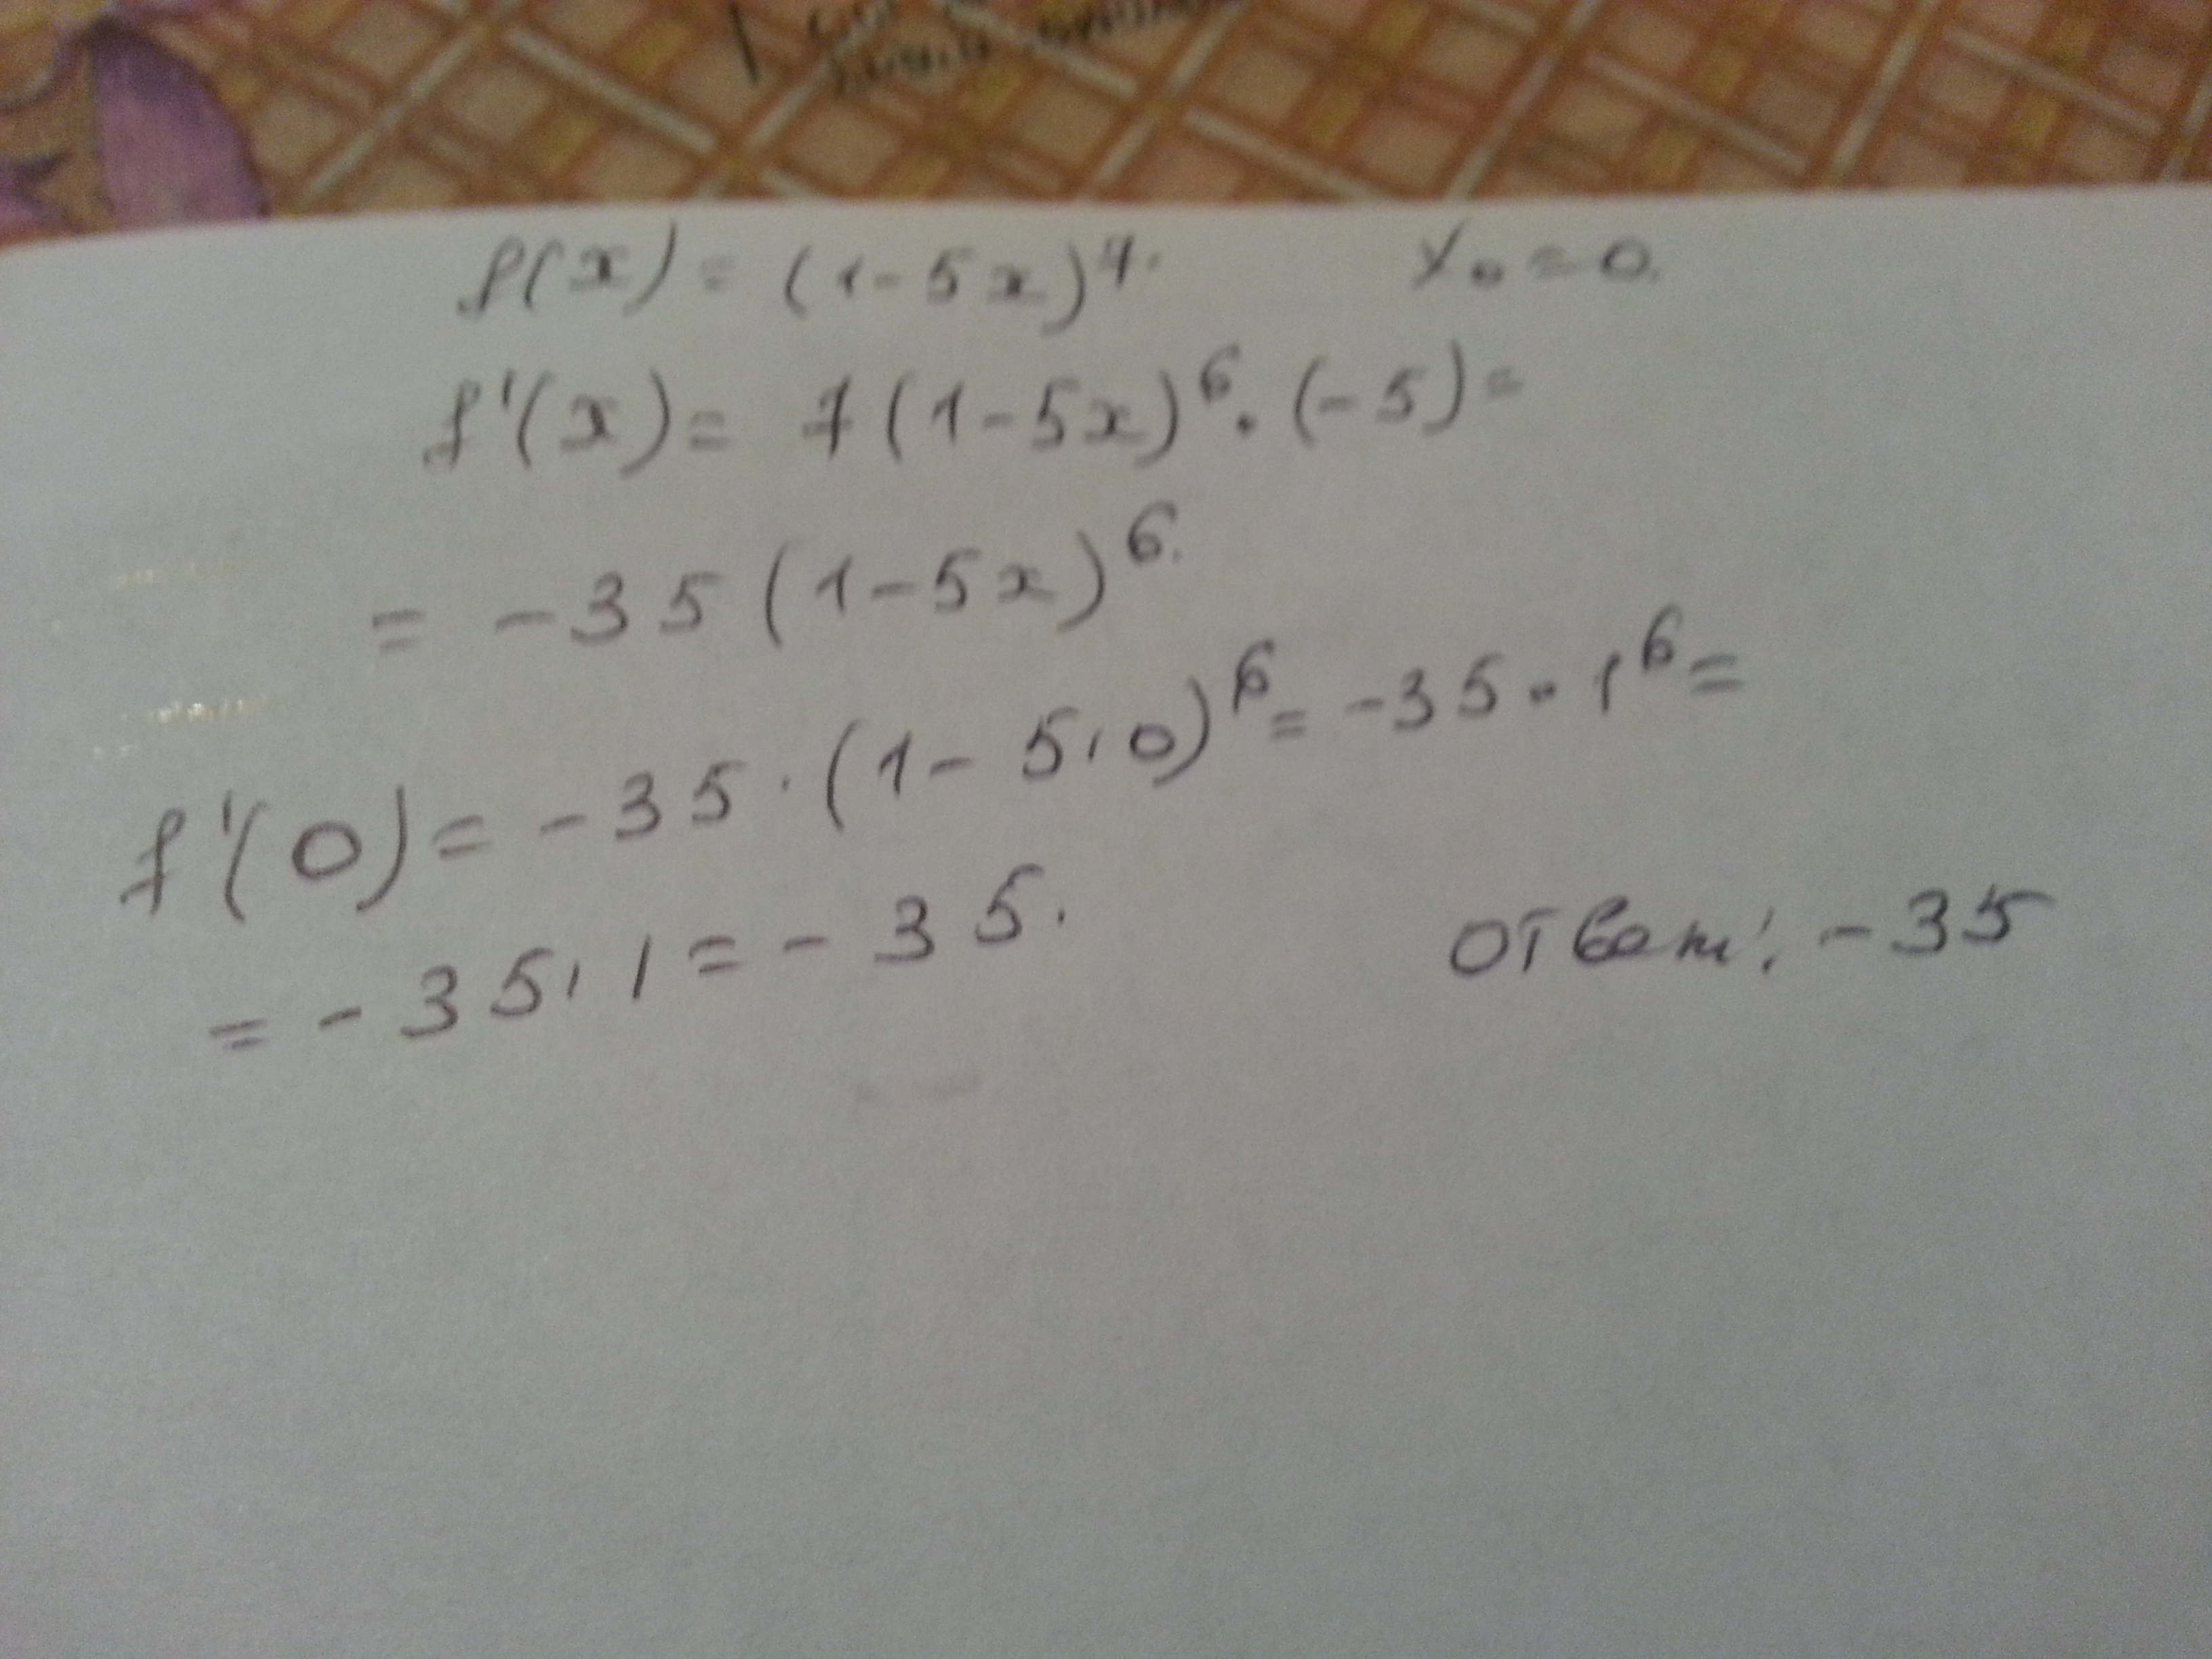 f(x) = (1-5x)⁷. x₀ = 0.
f'(x) = 7(1-5x)⁶ · (-5) =
= -35(1-5x)⁶.
f'(0) = -35 · (1-5·0)⁶ = -35 · 1⁶ =
= -35 · 1 = -35.
Ответ: -35